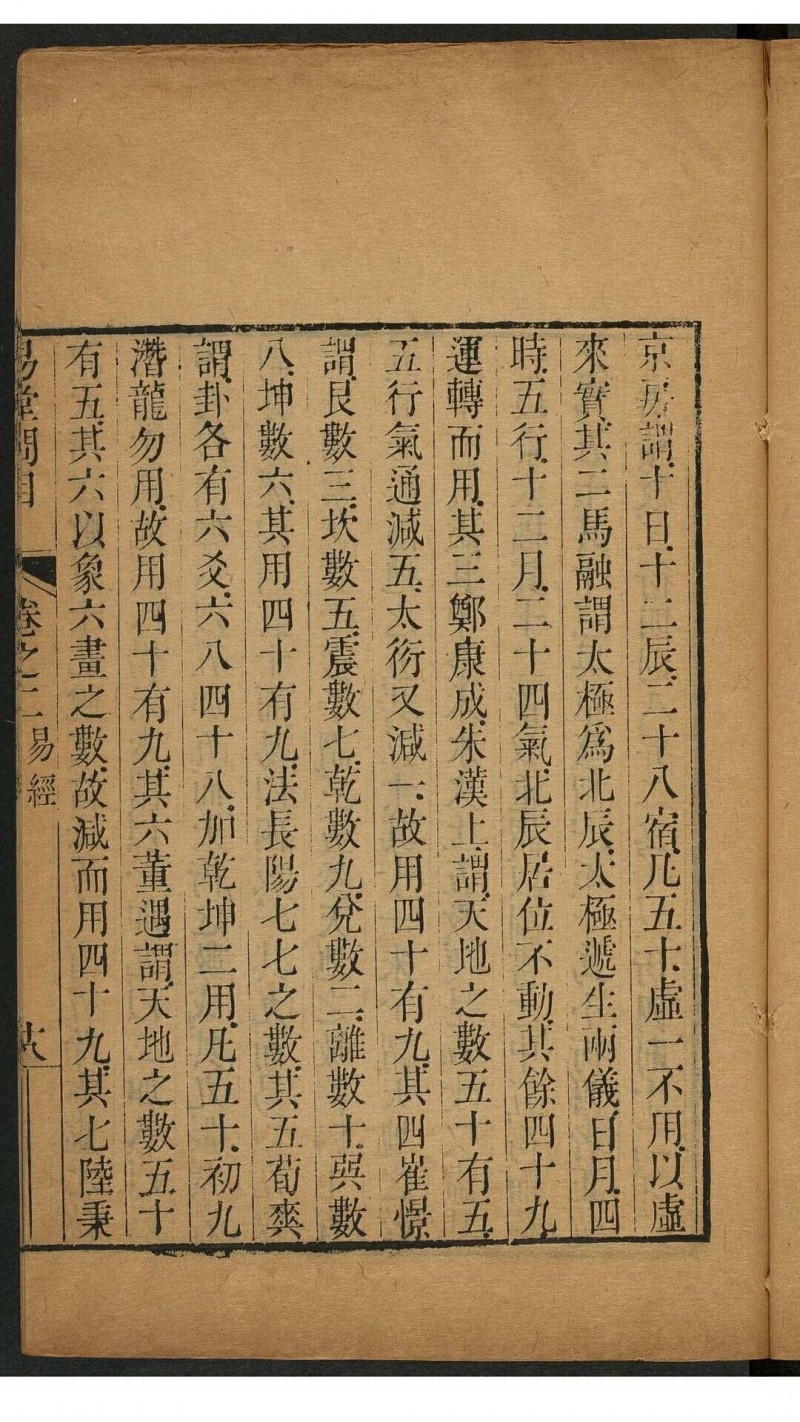 京房謂十日十二辰二十八宿凡五十虛一不用以虛
來實其二馬融謂太極爲北辰太極遞生兩儀日月四
時五行十二月二十四氣北辰居位不動其餘四十九
運轉而用其三鄭康成朱漢上謂天地之數五十有五
五行氣通減五太衍又減一故用四十有九其四崔憬
謂艮數三坎數五震數七乾數九兌數二離數十巽數
八坤數六其用四十有九法長陽七七之數其五荀爽
謂卦各有六爻六八四十八加乾坤二用凡五十初九
潛龍勿用故用四十有九其六董遇謂天地之數五十
有五其六以象六畫之數故減而用四十九其七陸秉
易堂問目 卷之二 易經 六